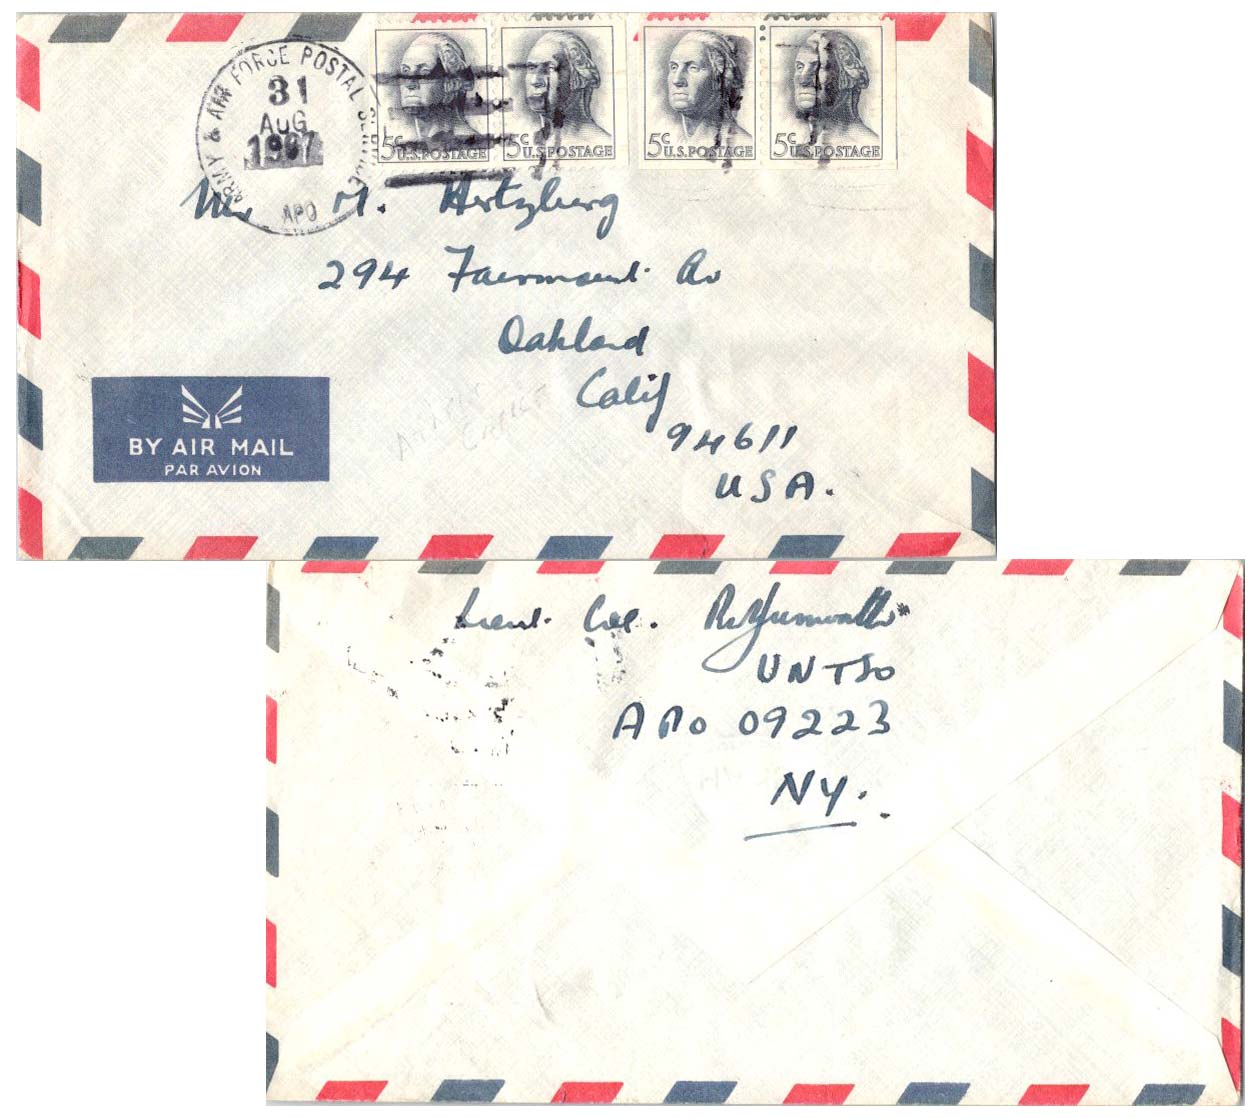 ARMY & AIR FORCE POSTAL SERVICE
31
AUG
1967
APO
5c U.S. POSTAGE 5c U.S. POSTAGE 5c U.S. POSTAGE 5c U.S. POSTAGE
M. Hertzberg
294 Fairmount Av
Oakland
Calif
94611
USA.
BY AIR MAIL
PAR AVION
Lieut. Col.
UNTSO
APO 09223
NY.